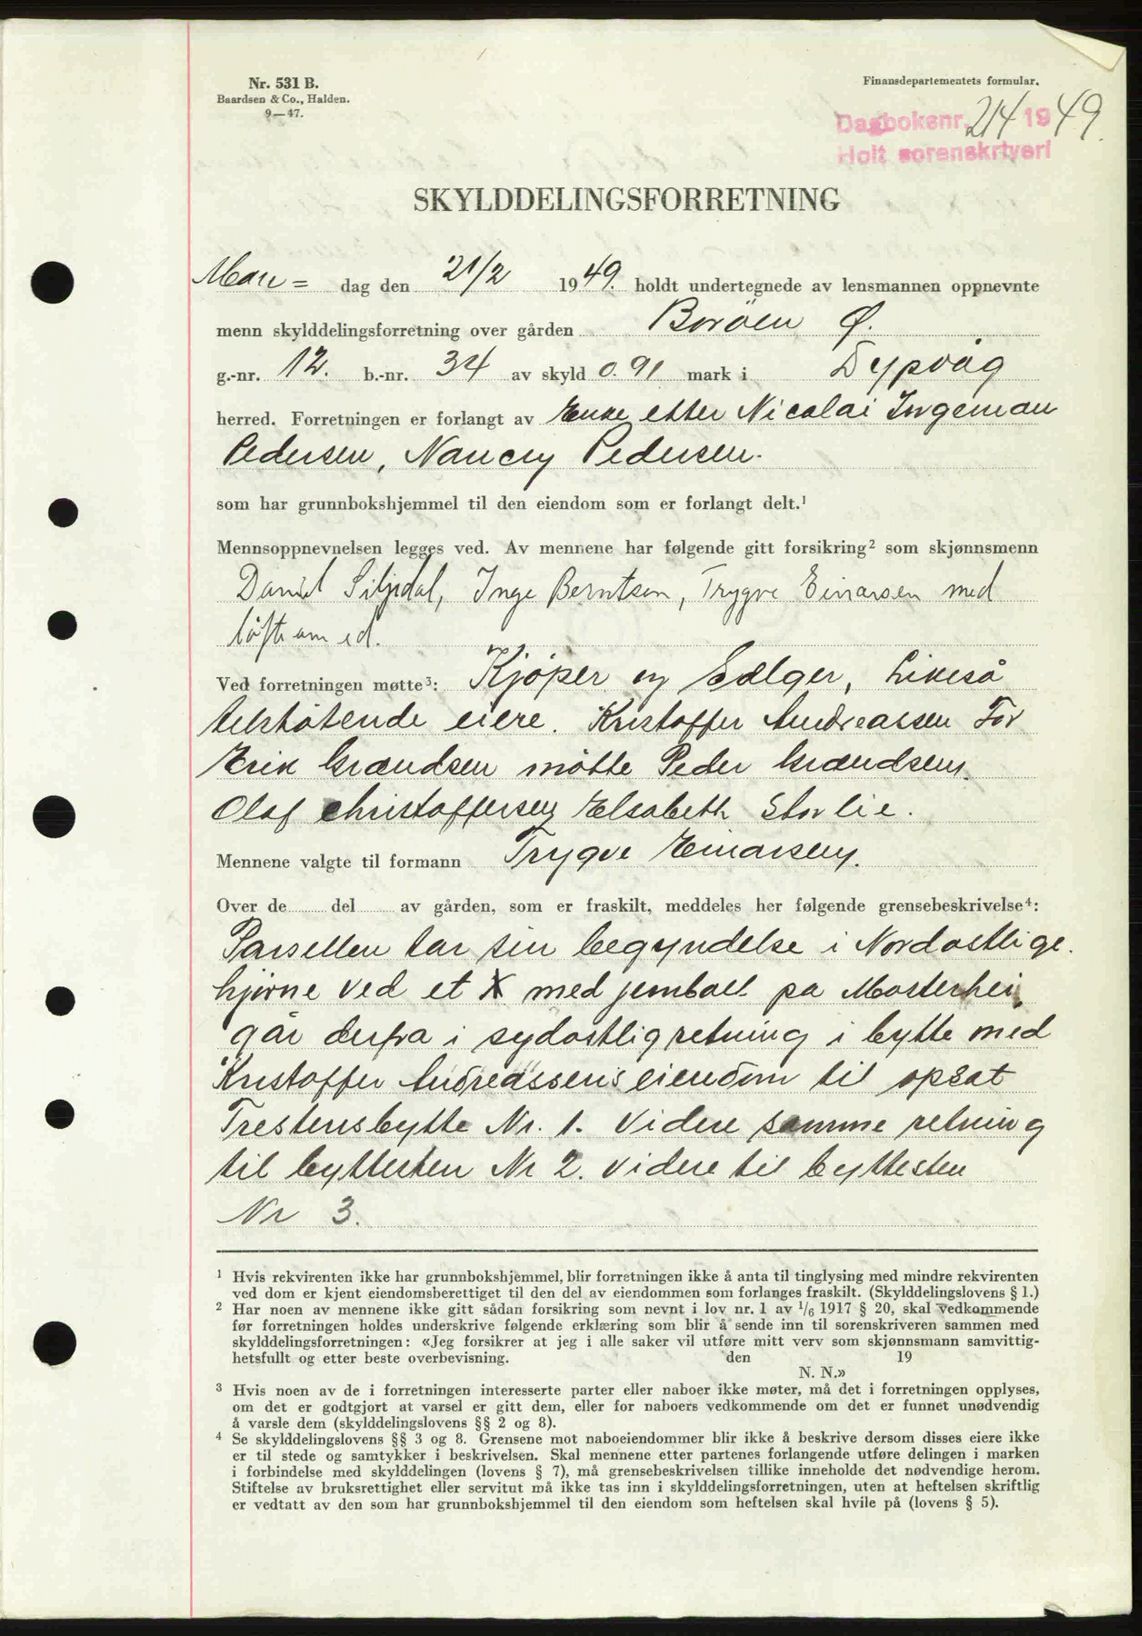 Nr. 531 B.
Baardsen & Co., Halden.
9—47.
Finansdepartementets formular.
Dagboksnr. 214 1949.
Holt sorenskriveri
SKYLDDELINGSFORRETNING
Man= dag den 21/2 1949. holdt undertegnede av lensmannen oppnevnte
menn skylddelingsforretning over gården Borøen Ø.
g.-nr. 12. b.-nr. 34 av skyld 0.91 mark i Dypvåg
herred. Forretningen er forlangt av Enke etter Nicolai Ingeman
Pedersen, Nancy Pedersen.
som har grunnbokshjemmel til den eiendom som er forlangt delt.¹
Mennsoppnevnelsen legges ved. Av mennene har følgende gitt forsikring² som skjønnsmenn
Daniel Siljedal, Inge Berntsen, Trygve Einarsen med
løfte om ed.
Ved forretningen møtte³: Kjøper og Selger, Likeså
tilstøtende eiere. Kristoffer Andreassen For
Erik Grændsen møtte Peder Grændsen.
Olaf Christoffersen Elsabeth Storlie.
Mennene valgte til formann Trygve Einarsen.
Over de del av gården, som er fraskilt, meddeles her følgende grensebeskrivelse⁴:
Parsellen tar sin begyndelse i Nordostlige.
hjørne ved et X med jernbolt på Mosterhei,
går derfra i sydostlig retning i bytte med
Kristoffer Andreassens eiendom til opsat
Trestensbytte Nr. 1. Videre samme retning
til byttesten Nr 2. videre til byttesten
Nr 3.
¹ Hvis rekvirenten ikke har grunnbokshjemmel, blir forretningen ikke å anta til tinglysing med mindre rekvirenten
ved dom er kjent eiendomsberettiget til den del av eiendommen som forlanges fraskilt. (Skylddelingslovens § 1.)
² Har noen av mennene ikke gitt sådan forsikring som nevnt i lov nr. 1 av 1/6 1917 § 20, skal vedkommende
før forretningen holdes underskrive følgende erklæring som blir å sende inn til sorenskriveren sammen med
skylddelingsforretningen: «Jeg forsikrer at jeg i alle saker vil utføre mitt verv som skjønnsmann samvittig-
hetsfullt og etter beste overbevisning. den 19
N. N.»
³ Hvis noen av de i forretningen interesserte parter eller naboer ikke møter, må det i forretningen opplyses,
om det er godtgjort at varsel er gitt dem, eller for naboers vedkommende om det er funnet unødvendig
å varsle dem (skylddelingslovens §§ 2 og 8).
⁴ Se skylddelingslovens §§ 3 og 8. Grensene mot naboeiendommer blir ikke å beskrive dersom disses eiere ikke
er til stede og samtykker i beskrivelsen. Skal mennene etter partenes forlangende utføre delingen i marken
i forbindelse med skylddelingen (lovens § 7), må grensebeskrivelsen tillike inneholde det nødvendige herom.
Stiftelse av bruksrettighet eller servitut må ikke tas inn i skylddelingsforretningen, uten at heftelsen skriftlig
er vedtatt av den som har grunnbokshjemmel til den eiendom som heftelsen skal hvile på (lovens § 5).